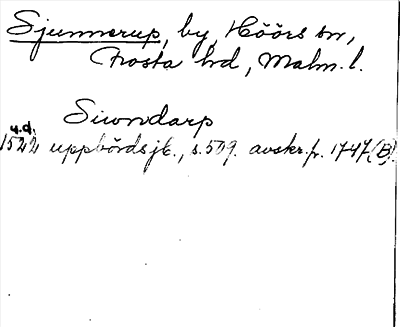 Sjunnerup, by, Höörs sn,
Frosta hd, Malm. l.
Siwndarp
u.d.
1522 uppbördsjb., s. 529. avskr. fr. 1747 (B).